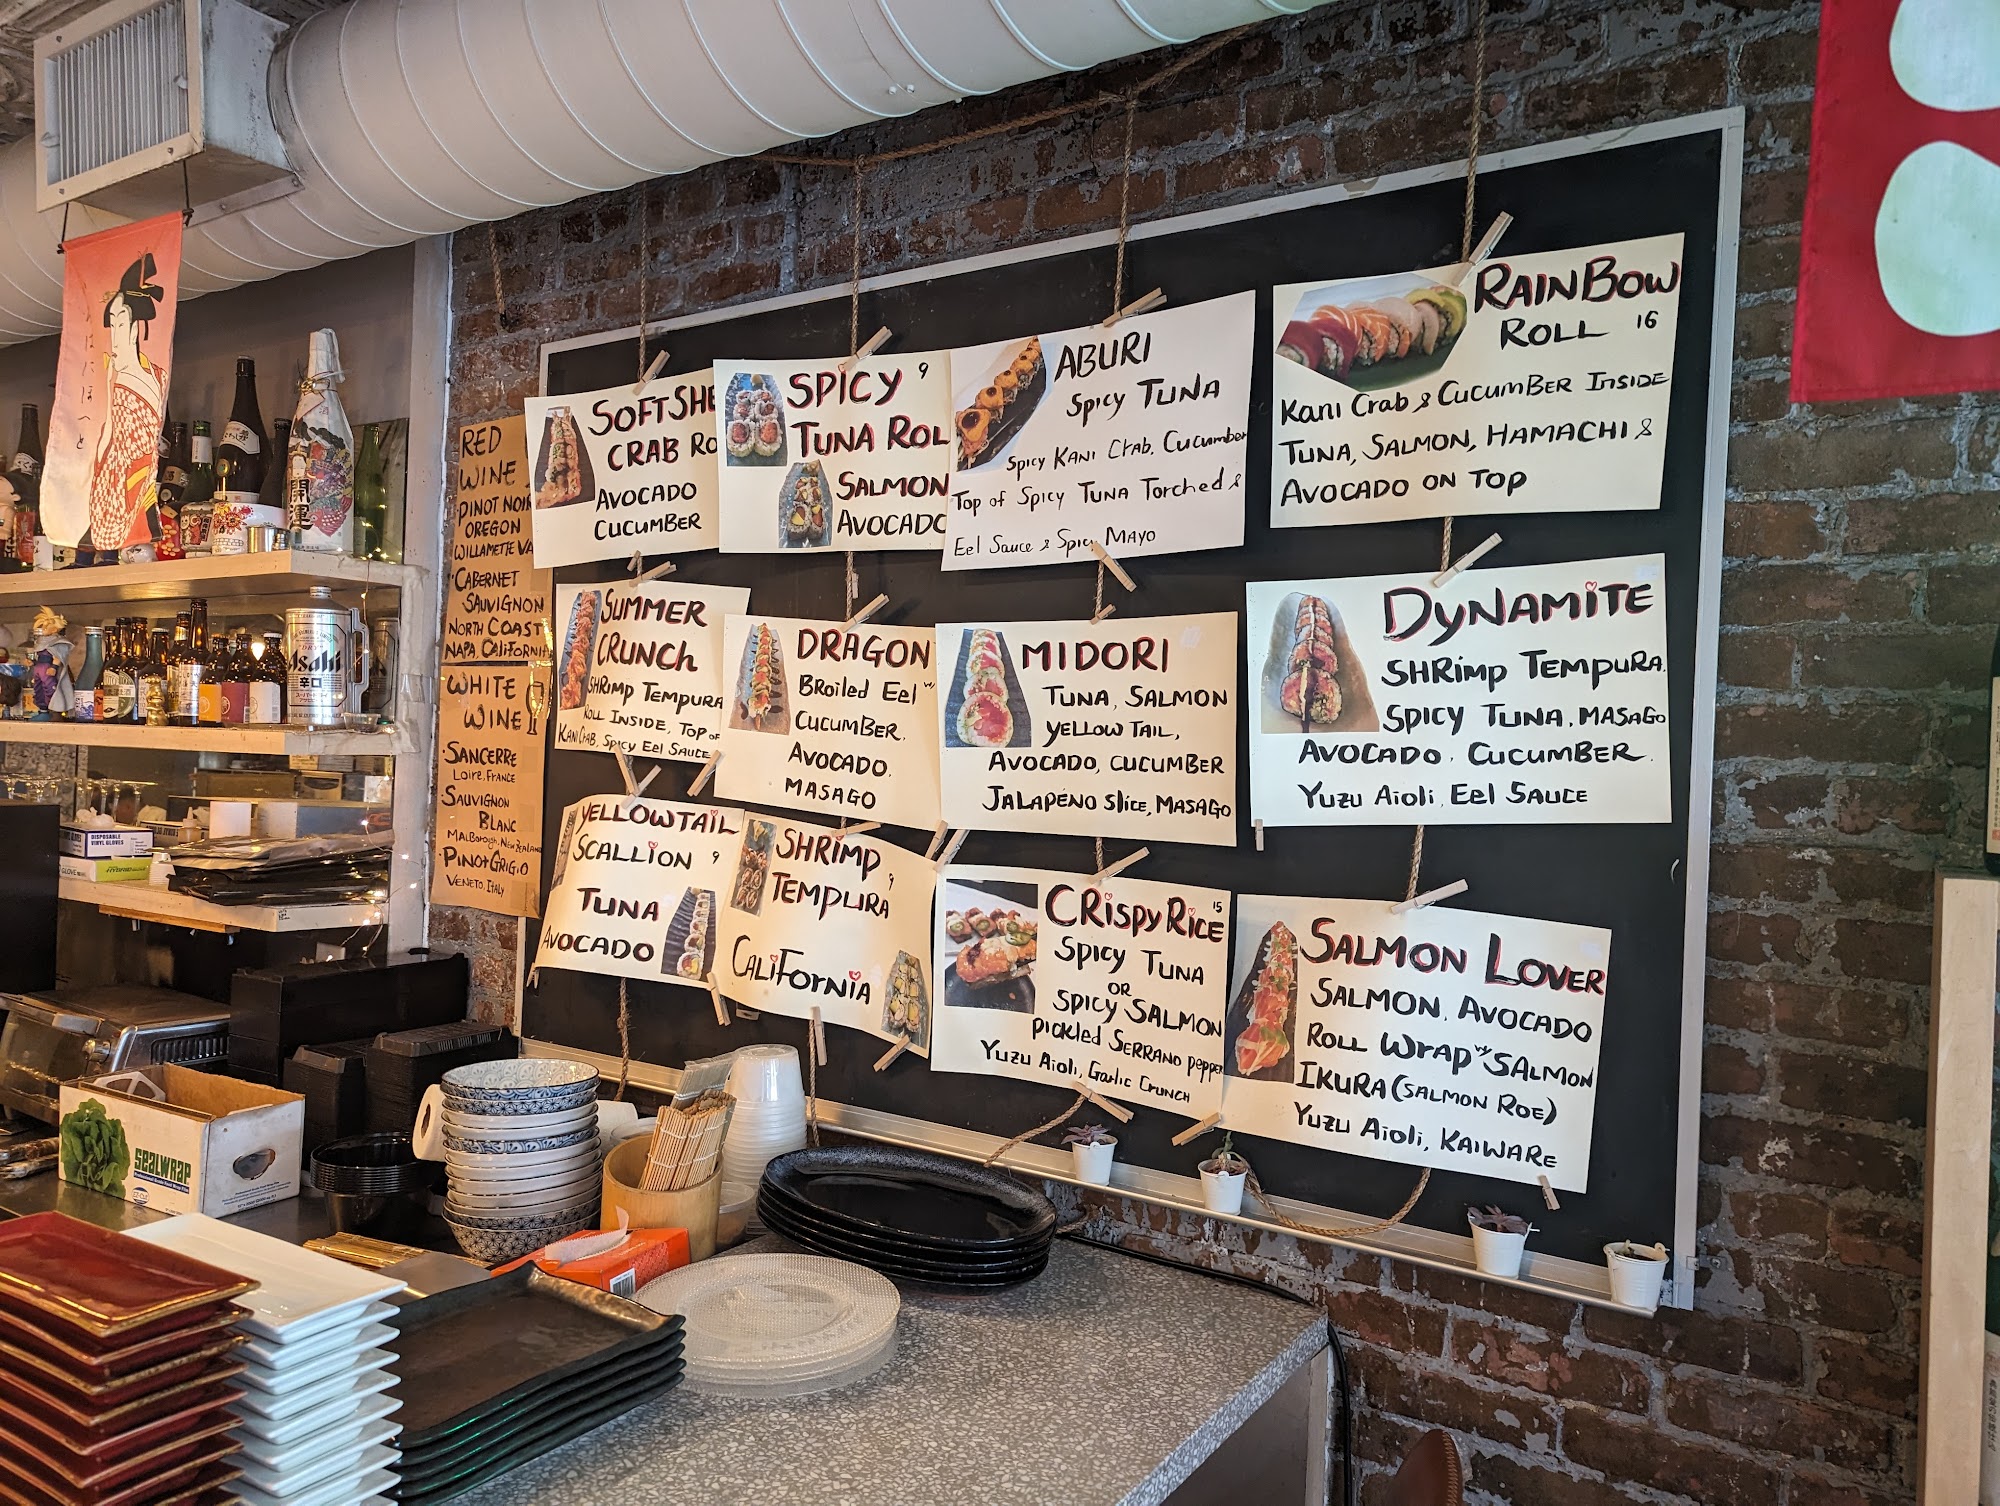 RED
WINE
PINOT NOIR
OREGON
WILLAMETTE VA
CABERNET
SAUVIGNON
NORTH COAST
NAPA, CALIFORNIA
WHITE
WINE
SANCERRE
LOIRE, FRANCE
SAUVIGNON
BLANC
MALBOROUGH, NEW ZEALAND
PINOT GRIGIO
VENETO, ITALY
SOFT SHE
CRAB RO
AVOCADO
CUCUMBER
SPICY 9
TUNA ROL
SALMON
AVOCADO
ABURI
SPICY TUNA
SPICY KANI CRAB, CUCUMBER
TOP OF SPICY TUNA TORCHED &
EEL SAUCE & SPICY MAYO
RAINBOW
ROLL 16
KANI CRAB & CUCUMBER INSIDE
TUNA, SALMON, HAMACHI &
AVOCADO ON TOP
SUMMER
CRUNCH
SHRIMP TEMPURA
ROLL INSIDE, TOP OF
KANI CRAB, SPICY EEL SAUCE
DRAGON
BROILED EEL w/
CUCUMBER,
AVOCADO,
MASAGO
MIDORI
TUNA, SALMON
YELLOW TAIL,
AVOCADO, CUCUMBER
JALAPEÑO SLICE, MASAGO
DYNAMITE
SHRIMP TEMPURA,
SPICY TUNA, MASAGO
AVOCADO, CUCUMBER,
YUZU AIOLI, EEL SAUCE
YELLOWTAIL
SCALLION 9
TUNA
AVOCADO
SHRIMP
TEMPURA 9
CALIFORNIA
CRISPY RICE 15
SPICY TUNA
OR
SPICY SALMON
PICKLED SERRANO PEPPER
YUZU AIOLI, GARLIC CRUNCH
SALMON LOVER
SALMON, AVOCADO
ROLL WRAP w/ SALMON
IKURA (SALMON ROE)
YUZU AIOLI, KAIWARE
いろはにほへと
開運
Asahi
辛口
DISPOSABLE
VINYL GLOVES
SEALWRAP